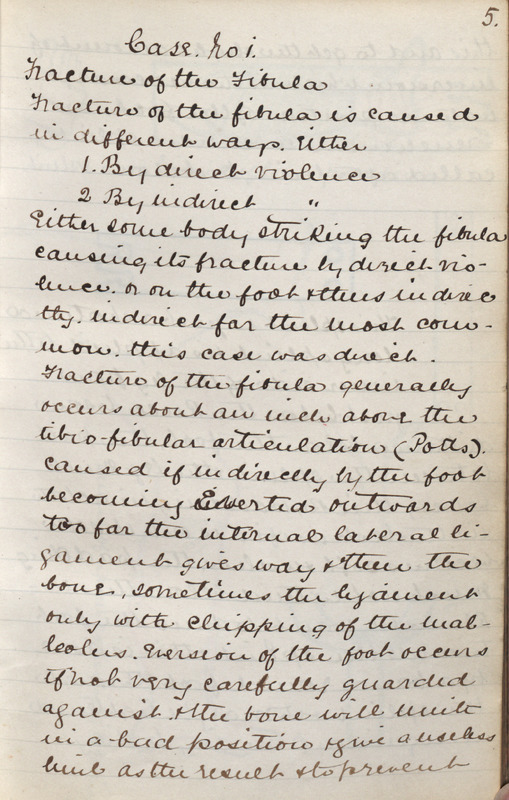 5.
Case. No 1.
Fracture of the Fibula
Fracture of the fibula is caused
in different ways. Either
1. By direct violence
2 By indirect "
Either some body striking the fibula
causing its fracture by direct vio-
lence. or on the foot & thus indirec
tly. indirect far the most com-
mon. this case was direct.
Fracture of the fibula generally
occurs about an inch above the
tibio-fibular articulation (Potts).
caused if indirectly by the foot
becoming Everted outwards
too far the internal lateral li-
gament gives way & then the
bone, sometimes the ligament
only with chipping of the mal-
leolus. Eversion of the foot occurs
if not very carefully guarded
against. & the bone will unite
in a bad position & give a useless
limb as the result & to prevent